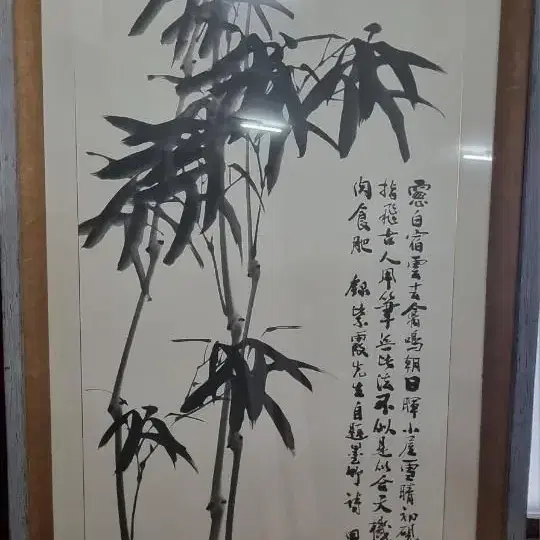 窓白宿雲去禽鳴朝日暉小屋雪晴初
指飛古人用筆無此法不似是似合天機
肉食肥 録紫霞先生自題墨竹詩